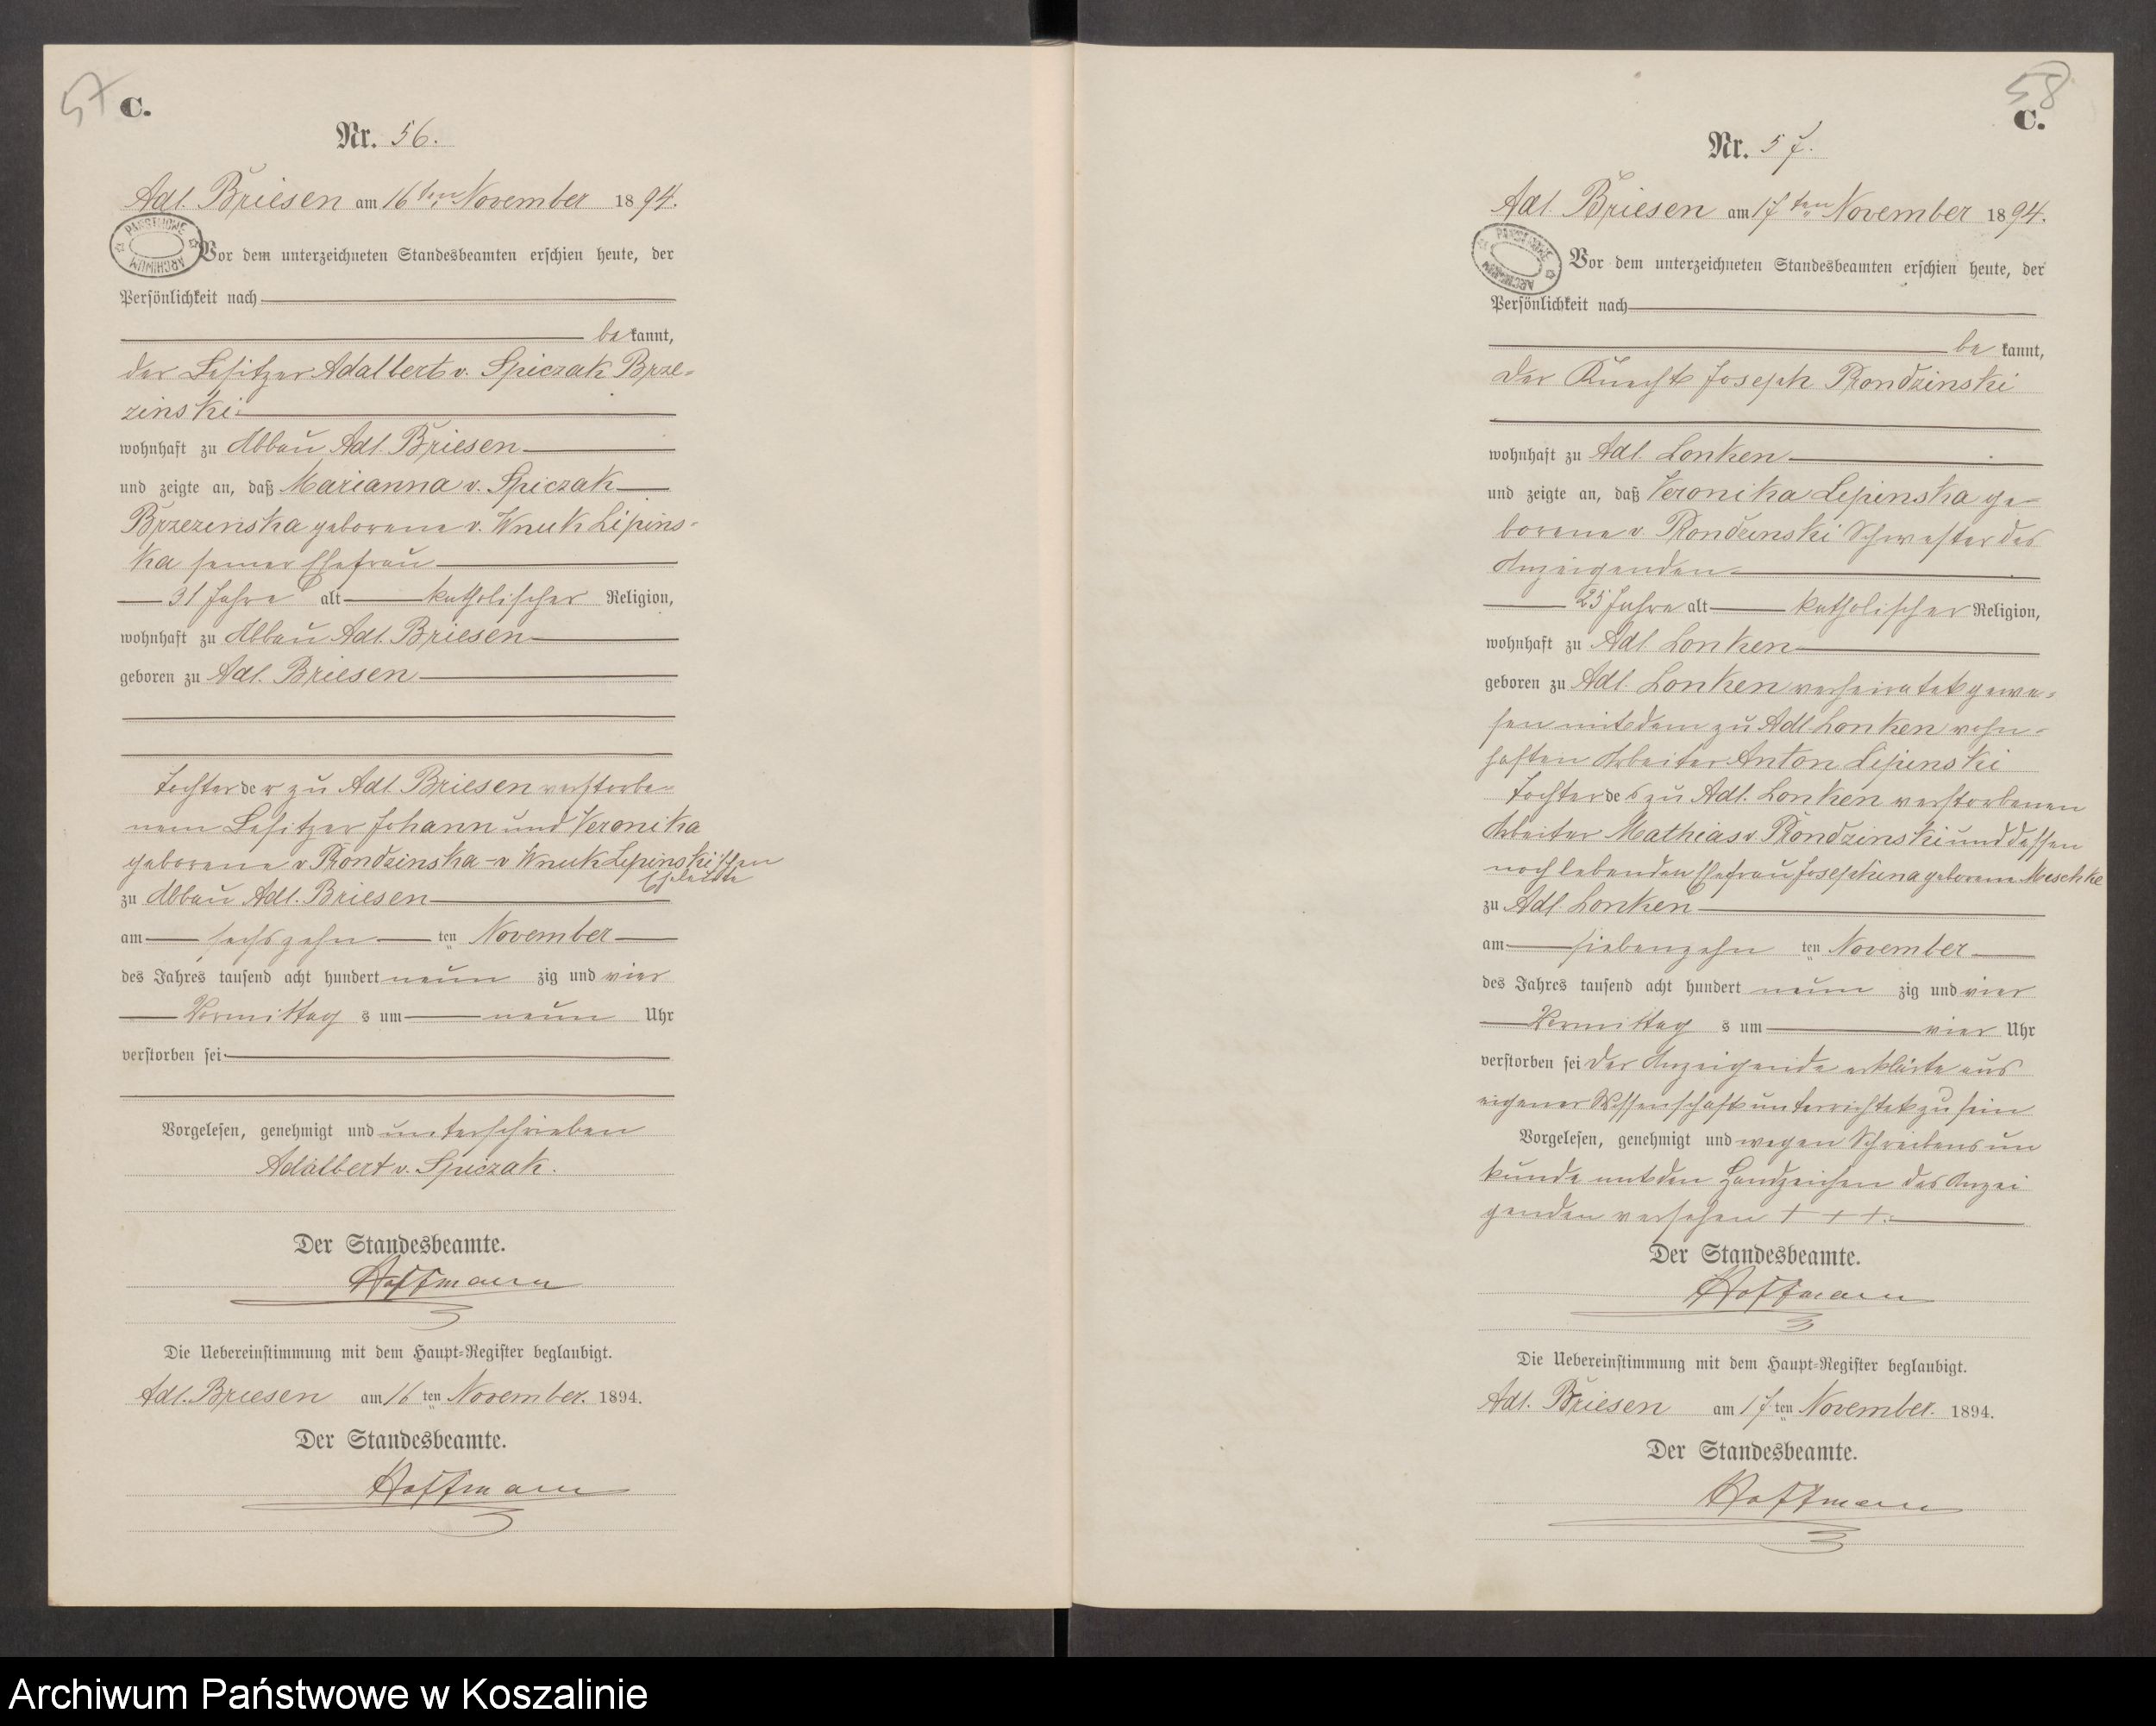 57 C.
Nr. 56.
Adl. Briesen am 16ten November 1894.
PAŃSTWOWE ARCHIWUM
Vor dem unterzeichneten Standesbeamten erschien heute, der
Persönlichkeit nach
bekannt,
der Besitzer Adalbert v. Spiczak Brze-
zinski
wohnhaft zu Abbau Adl. Briesen
und zeigte an, daß Marianna v. Spiczak
Brzezinska geborene v. Wnuk Lipins-
ka seiner Ehefrau
31 Jahre alt katholischer Religion,
wohnhaft zu Abbau Adl. Briesen
geboren zu Adl. Briesen
Tochter der zu Adl. Briesen verstorbe-
nen Besitzer Johann und Veronika
geborene v Rondzinska - v Wnuk Lipinskischen
Eheleute
zu Abbau Adl. Briesen
am sechszehnten November
des Jahres tausend acht hundert neunzig und vier
Vormittags um neun Uhr
verstorben sei
Vorgelesen, genehmigt und unterschrieben
Adalbert v. Spiczak.
Der Standesbeamte.
Hoffmann
Die Uebereinstimmung mit dem Haupt-Register beglaubigt.
Adl. Briesen am 16ten November. 1894.
Der Standesbeamte.
Hoffmann
58
C.
Nr. 57.
Adl Briesen am 17ten November 1894.
PAŃSTWOWE ARCHIWUM
Vor dem unterzeichneten Standesbeamten erschien heute, der
Persönlichkeit nach
bekannt,
der Knecht Joseph Rondzinski
wohnhaft zu Adl. Lonken
und zeigte an, daß Veronika Lepinska ge-
borene v. Rondzinski Schwester des
Anzeigenden
25 Jahre alt katholischer Religion,
wohnhaft zu Adl Lonken
geboren zu Adl. Lonken verheiratet gewe-
sen mit dem zu Adl Lonken wohn-
haften Arbeiter Anton Lipinski
Tochter des zu Adl. Lonken verstorbenen
Arbeiter Mathias v. Rondzinski und dessen
noch lebenden Ehefrau Josephina geborene Meschke
zu Adl. Lonken
am siebenzehnten November
des Jahres tausend acht hundert neunzig und vier
Vormittags um vier Uhr
verstorben sei Der Anzeigende erklärte aus
eigener Wissenschaft unterrichtet zu sein
Vorgelesen, genehmigt und wegen Schreibensun
kunde mit den Handzeichen des Anzei
genden versehen + + +.
Der Standesbeamte.
Hoffmann
Die Uebereinstimmung mit dem Haupt-Register beglaubigt.
Adl. Briesen am 17ten November. 1894.
Der Standesbeamte.
Hoffmann
Archiwum Państwowe w Koszalinie